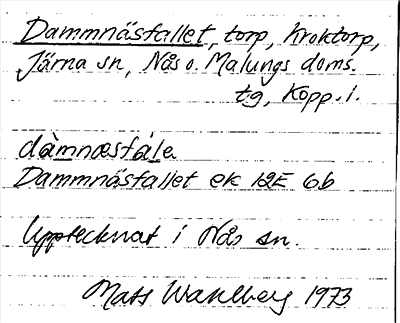 Dammnäsfallet, torp, kroktorp,
Järna sn, Nås o. Malungs doms.
tg, Kopp. l.
dàmnæsfála
Dammnäsfallet ek 12E 6b
Upptecknat i Nås sn.
Mats Wahlberg 1973